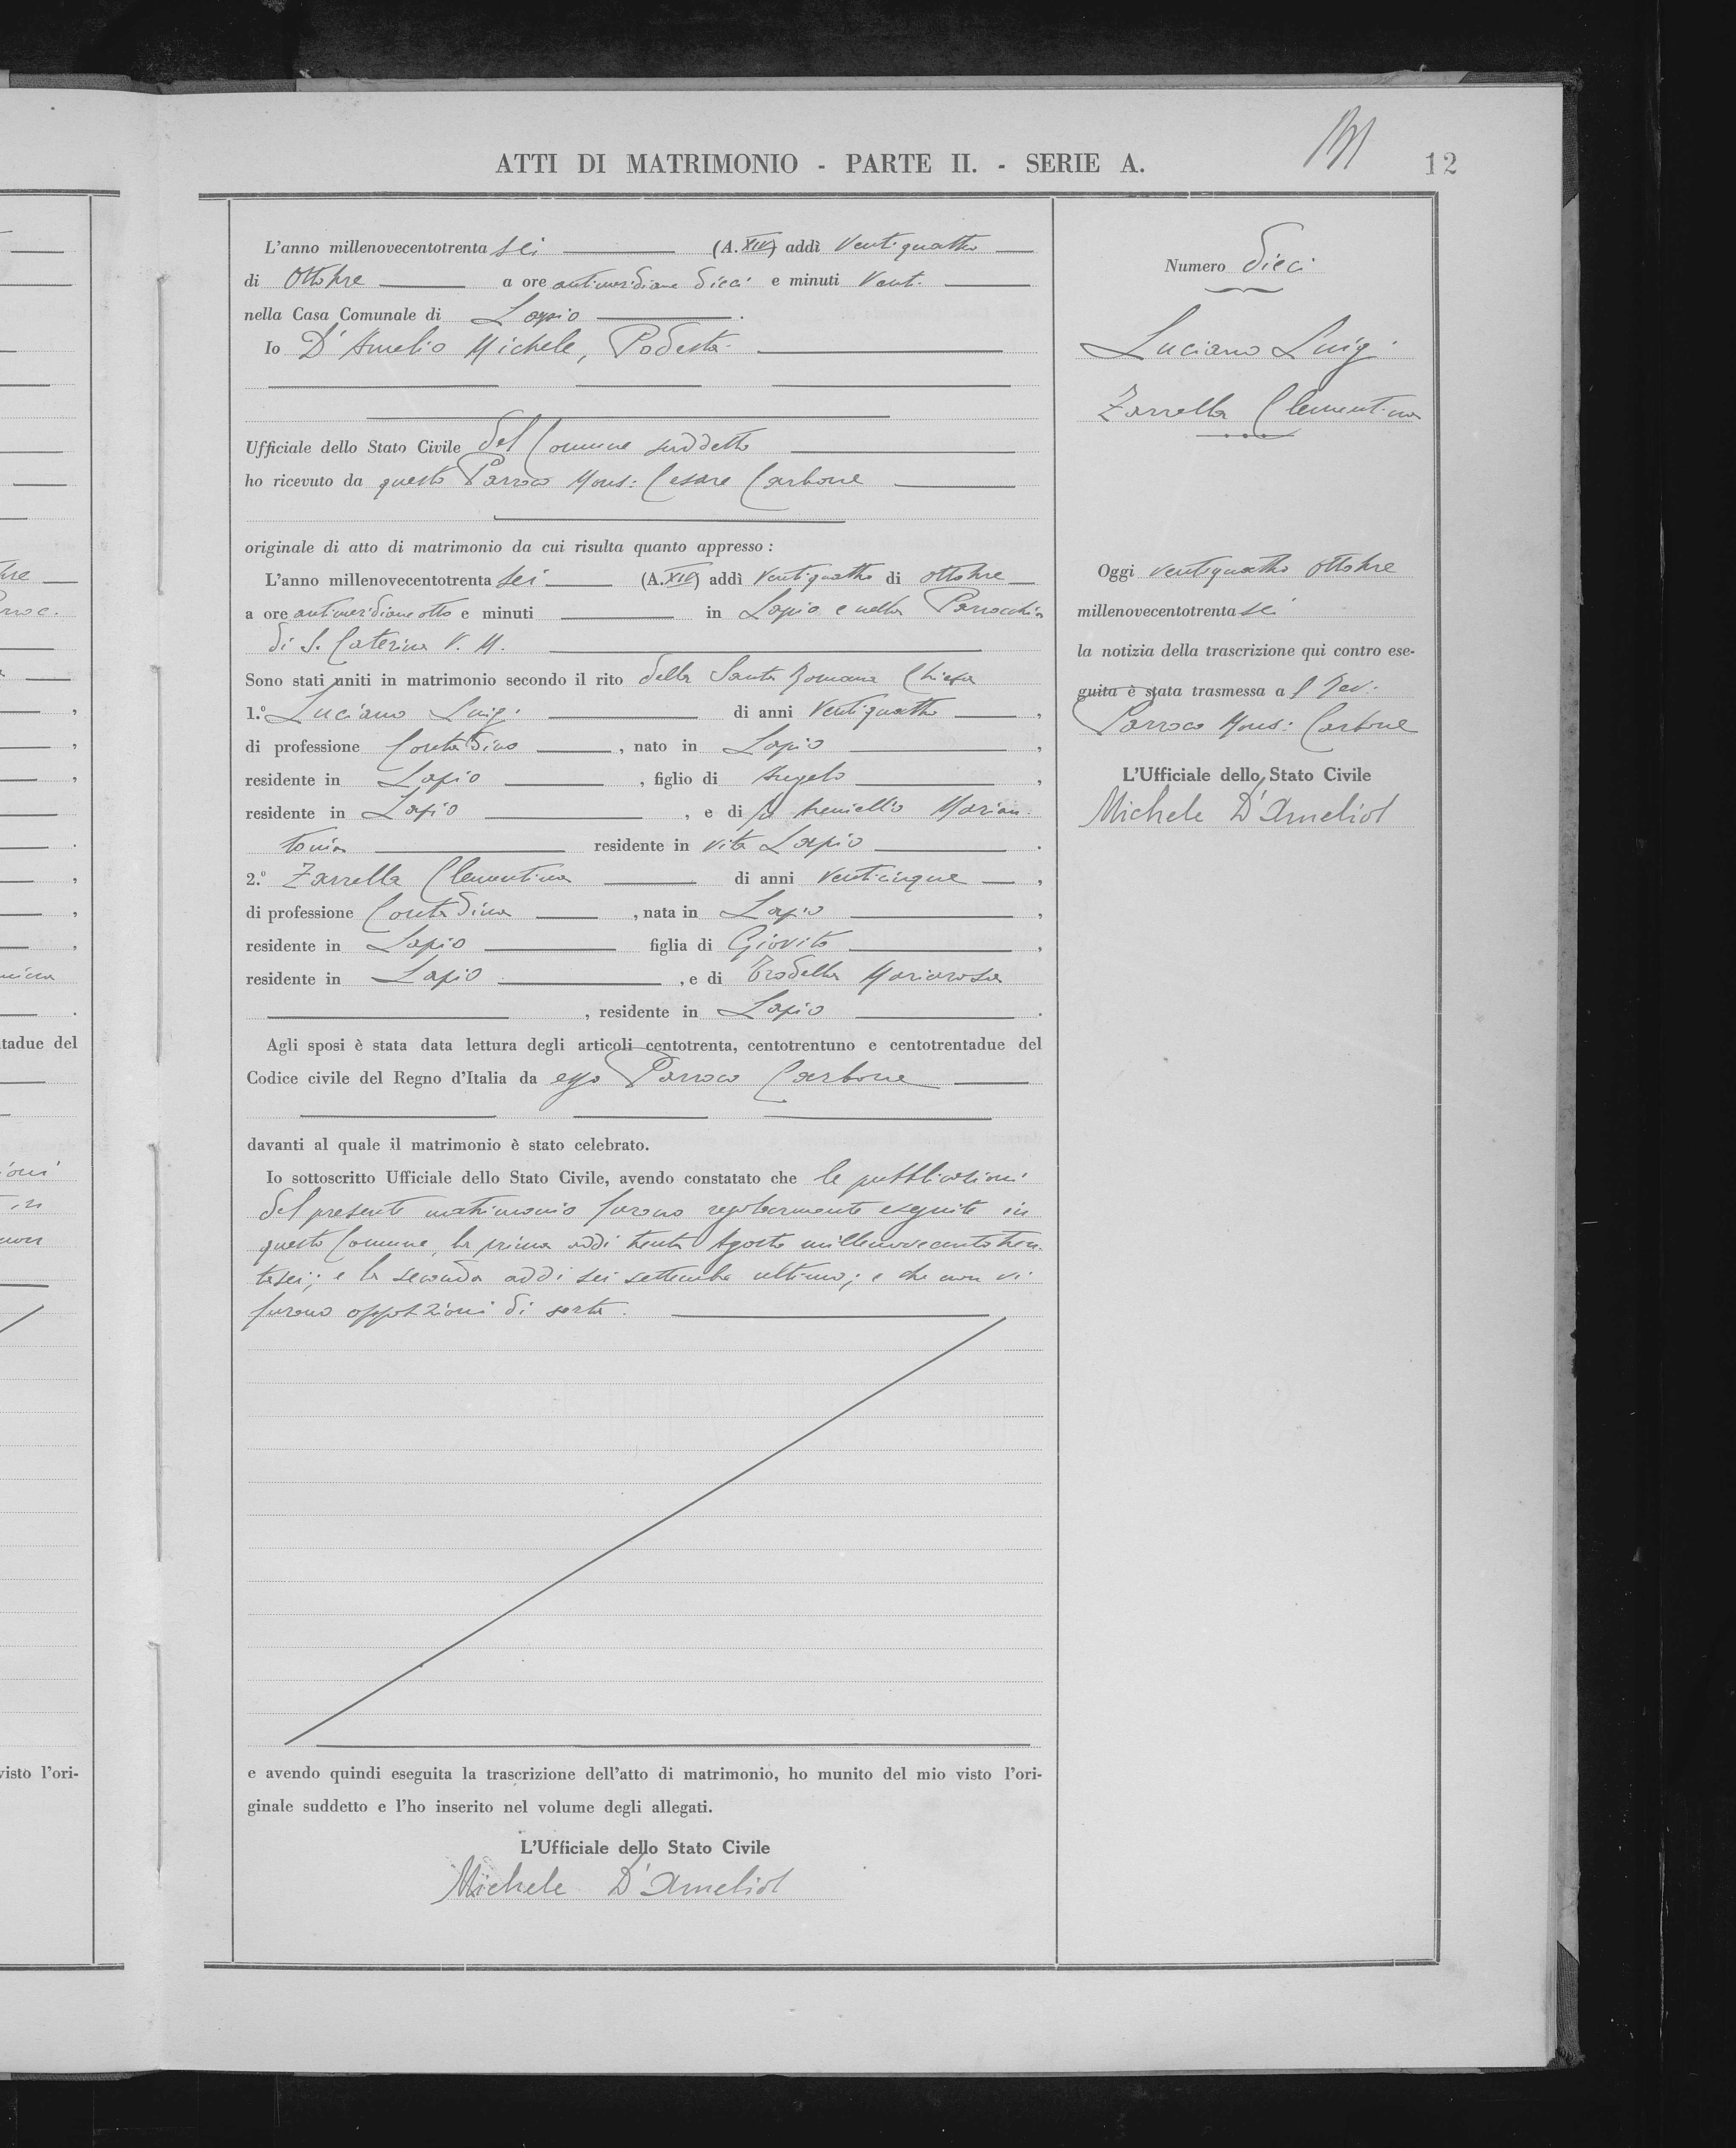 ATTI DI MATRIMONIO - PARTE II. - SERIE A.
12
L'anno millenovecentotrenta sei (A. XIV) addì Ventiquattro
di Ottobre a ore antimeridiane dieci e minuti Venti
nella Casa Comunale di Lapio.
Io D'Amelio Michele, Podestà
Ufficiale dello Stato Civile del Comune suddetto
ho ricevuto da questo Parroco Mons: Cesare Carbone
originale di atto di matrimonio da cui risulta quanto appresso:
L'anno millenovecentotrenta sei (A. XIV) addì Ventiquattro di ottobre
a ore antimeridiane otto e minuti in Lapio e nella Parrocchia
di S. Caterina V. M.
Sono stati uniti in matrimonio secondo il rito della Santa Romana Chiesa
1.° Luciano Luigi di anni Ventiquattro,
di professione Contadino, nato in Lapio,
residente in Lapio, figlio di Angelo,
residente in Lapio, e di Marian-
tonia residente in vita Lapio.
2.° Zarrella Clementina di anni Venticinque,
di professione Contadina, nata in Lapio,
residente in Lapio figlia di Giovito,
residente in Lapio, e di Trodella Mariarosa
, residente in Lapio.
Agli sposi è stata data lettura degli articoli centotrenta, centotrentuno e centotrentadue del
Codice civile del Regno d'Italia da esso Parroco Carbone
davanti al quale il matrimonio è stato celebrato.
Io sottoscritto Ufficiale dello Stato Civile, avendo constatato che le pubblicazioni
del presente matrimonio furono regolarmente eseguite in
questo Comune, la prima addì trenta Agosto millenovecentotren-
tasei; e la seconda addì sei settembre ultimo; e che non vi
furono opposizioni di sorta.
e avendo quindi eseguita la trascrizione dell'atto di matrimonio, ho munito del mio visto l'ori-
ginale suddetto e l'ho inserito nel volume degli allegati.
L'Ufficiale dello Stato Civile
Michele D'Amelio
Numero dieci
Luciano Luigi
Zarrella Clementina
Oggi ventiquattro ottobre
millenovecentotrenta sei
la notizia della trascrizione qui contro ese-
guita è stata trasmessa a l Rev:
Parroco Mons: Carbone
L'Ufficiale dello Stato Civile
Michele D'Amelio
tadue del
visto l'ori-